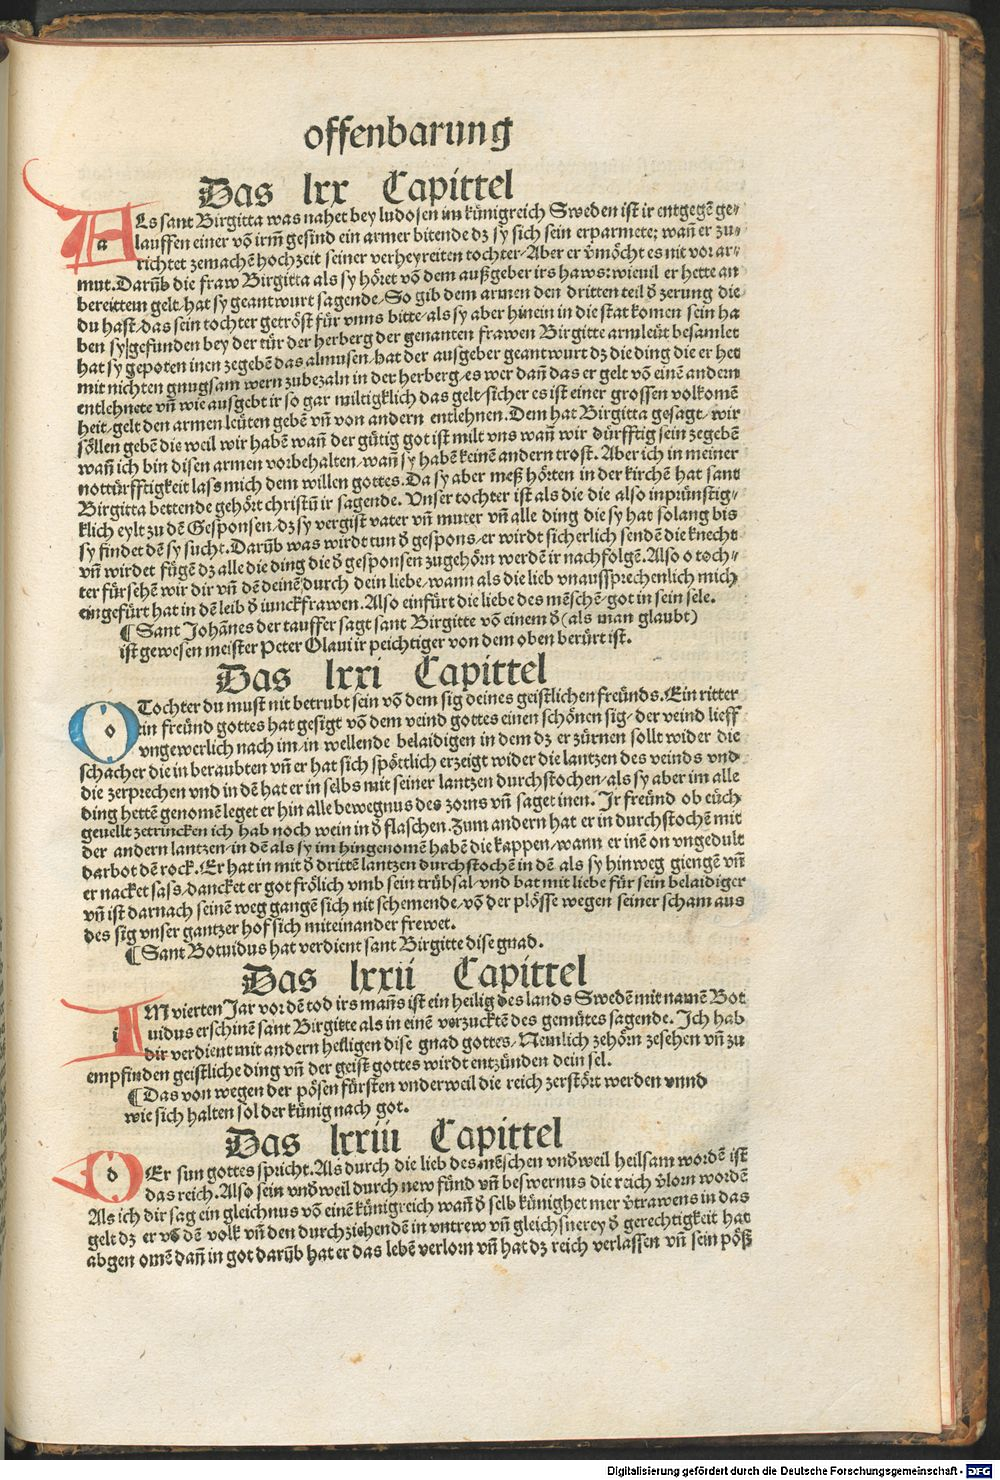 offenbarung
Das lxx Capittel
ALs sant Birgitta was nahet bey ludosen im künigreich Sweden ist ir entgegē ge⸗
lauffen einer vō irm̄ gesind ein armer bitende dz sy sich sein erparmete; wan̄ er zu⸗
richtet zemachē hochzeit seiner verheyreiten tochter/Aber er v̄möcht es nit vor ar⸗
mut. Darūb die fraw Birgitta als sy höret vō dem außgeber irs haws: wieuil er hette an
bereittem gelt/hat sy geantwurt sagende/So gib dem armen den dritten teil d̄ zerung die
du hast/das sein tochter getröst für vnns bitte/als sy aber hinein in die stat komen sein ha
ben sy gefunden bey der tür der herberg der genanten frawen Birgitte armleüt besamlet
hat sy gepoten inen zegebē das almusen/hat der ausgeber geantwurt dz die ding die er het
mit nichten gnugsam wern zubezaln in der herberg/es wer dan̄ das er gelt vō einē andern
entlehnete vn̄ wie ausgebt ir so gar miltigklich das gelt/sicher es ist einer grossen volkomē
heit/gelt den armen leüten gebē vn̄ von andern entlehnen. Dem hat Birgitta gesagt/wir
söllen gebē die weil wir habē wan̄ der gütig got ist milt vns wan̄ wir dürfftig sein zegebē
wan̄ ich bin disen armen vorbehalten/wan̄ sy habē keinē andern trost. Aber ich in meiner
nottürfftigkeit lass mich dem willen gottes. Da sy aber meß hörten in der kirchē hat sant
Birgitta bettende gehört christū ir sagende. Vnser tochter ist als die die also inprünstig⸗
klich eylt zu dē Gesponsen/dz sy vergist vater vn̄ muter vn̄ alle ding die sy hat solang bis
sy findet dē sy sucht. Darūb was wirdt tun d̄ gespons/er wirdt sicherlich sendē die knecht
vn̄ wirdet fügē dz alle die ding die d̄ gesponsen zugehörn werdē ir nachfolgē. Also o toch⸗
ter fürsehē wir dir vn̄ dē deinē durch dein liebe/wann als die lieb vnaussprechenlich mich
eingefürt hat in dē leib d̄ iunckfrawen. Also einfürt die liebe des mēschē/got in sein sele.
¶ Sant Johānes der tauffer sagt sant Birgitte vō einem d̄ (als man glaubt)
ist gewesen meister Peter Olaui ir peichtiger von dem oben berürt ist.
Das lxxi Capittel
O Tochter du must nit betrubt sein vō dem sig deines geistlichen freünds. Ein ritter
ein freünd gottes hat gesigt vō dem veind gottes einen schönen sig/der veind lieff
vngewerlich nach im/in wellende belaidigen in dem dz er zürnen sollt wider die
schacher die in beraubten vn̄ er hat sich spöttlich erzeigt wider die lantzen des veinds vnd
die zerprechen vnd in dē hat er in selbs mit seiner lantzen durchstochen/als sy aber im alle
ding hettē genomē leget er hin alle bewegnus des zorns vn̄ saget inen. Ir freünd ob eüch
geuellt zetrincken ich hab noch wein in d̄ flaschen. Zum andern hat er in durchstochē mit
der andern lantzen/in dē als sy im hingenomē habē die kappen/wann er inē on vngedult
darbot dē rock. Er hat in mit d̄ drittē lantzen durchstochē in dē als sy hinweg giengē vn̄
er nacket sass/dancket er got frölich vmb sein trübsal/vnd bat mit liebe für sein belaidiger
vn̄ ist darnach seinē weg gangē sich nit schemende/vō der plösse wegen seiner scham aus
des sig vnser gantzer hof sich miteinander frewet.
¶ Sant Botuidus hat verdient sant Birgitte dise gnad.
Das lxxii Capittel
IM vierten Jar vor dē tod irs man̄s ist ein heilig des lands Swedē mit namē Bot
uidus erschinē sant Birgitte als in einē verzucktē des gemütes sagende. Ich hab
dir verdient mit andern heiligen dise gnad gottes/Nemlich zehörn zesehen vn̄ zu
empfinden geistliche ding vn̄ der geist gottes wirdt entzünden dein sel.
¶ Das von wegen der pösen fürsten vnderweil die reich zerstört werden vnnd
wie sich halten sol der künig nach got.
Das lxxiii Capittel
DEr sun gottes spricht. Als durch die lieb des mēschen vnd̄weil heilsam wordē ist
das reich. Also sein vnd̄weil durch new fünd vn̄ beswernus die reich v̄lorn wordē
Als ich dir sag ein gleichnus vō einē künigreich wan̄ d̄ selb künig het mer v̄trawens in das
gelt dz er vō dē volk vn̄ den durchziehendē in vntrew vn̄ gleichsnerey d̄ gerechtigkeit hat
abgen omē dan̄ in got darūb hat er das lebē verlorn vn̄ hat dz reich verlassen vn̄ sein pöß
Digitalisierung gefördert durch die Deutsche Forschungsgemeinschaft - DFG